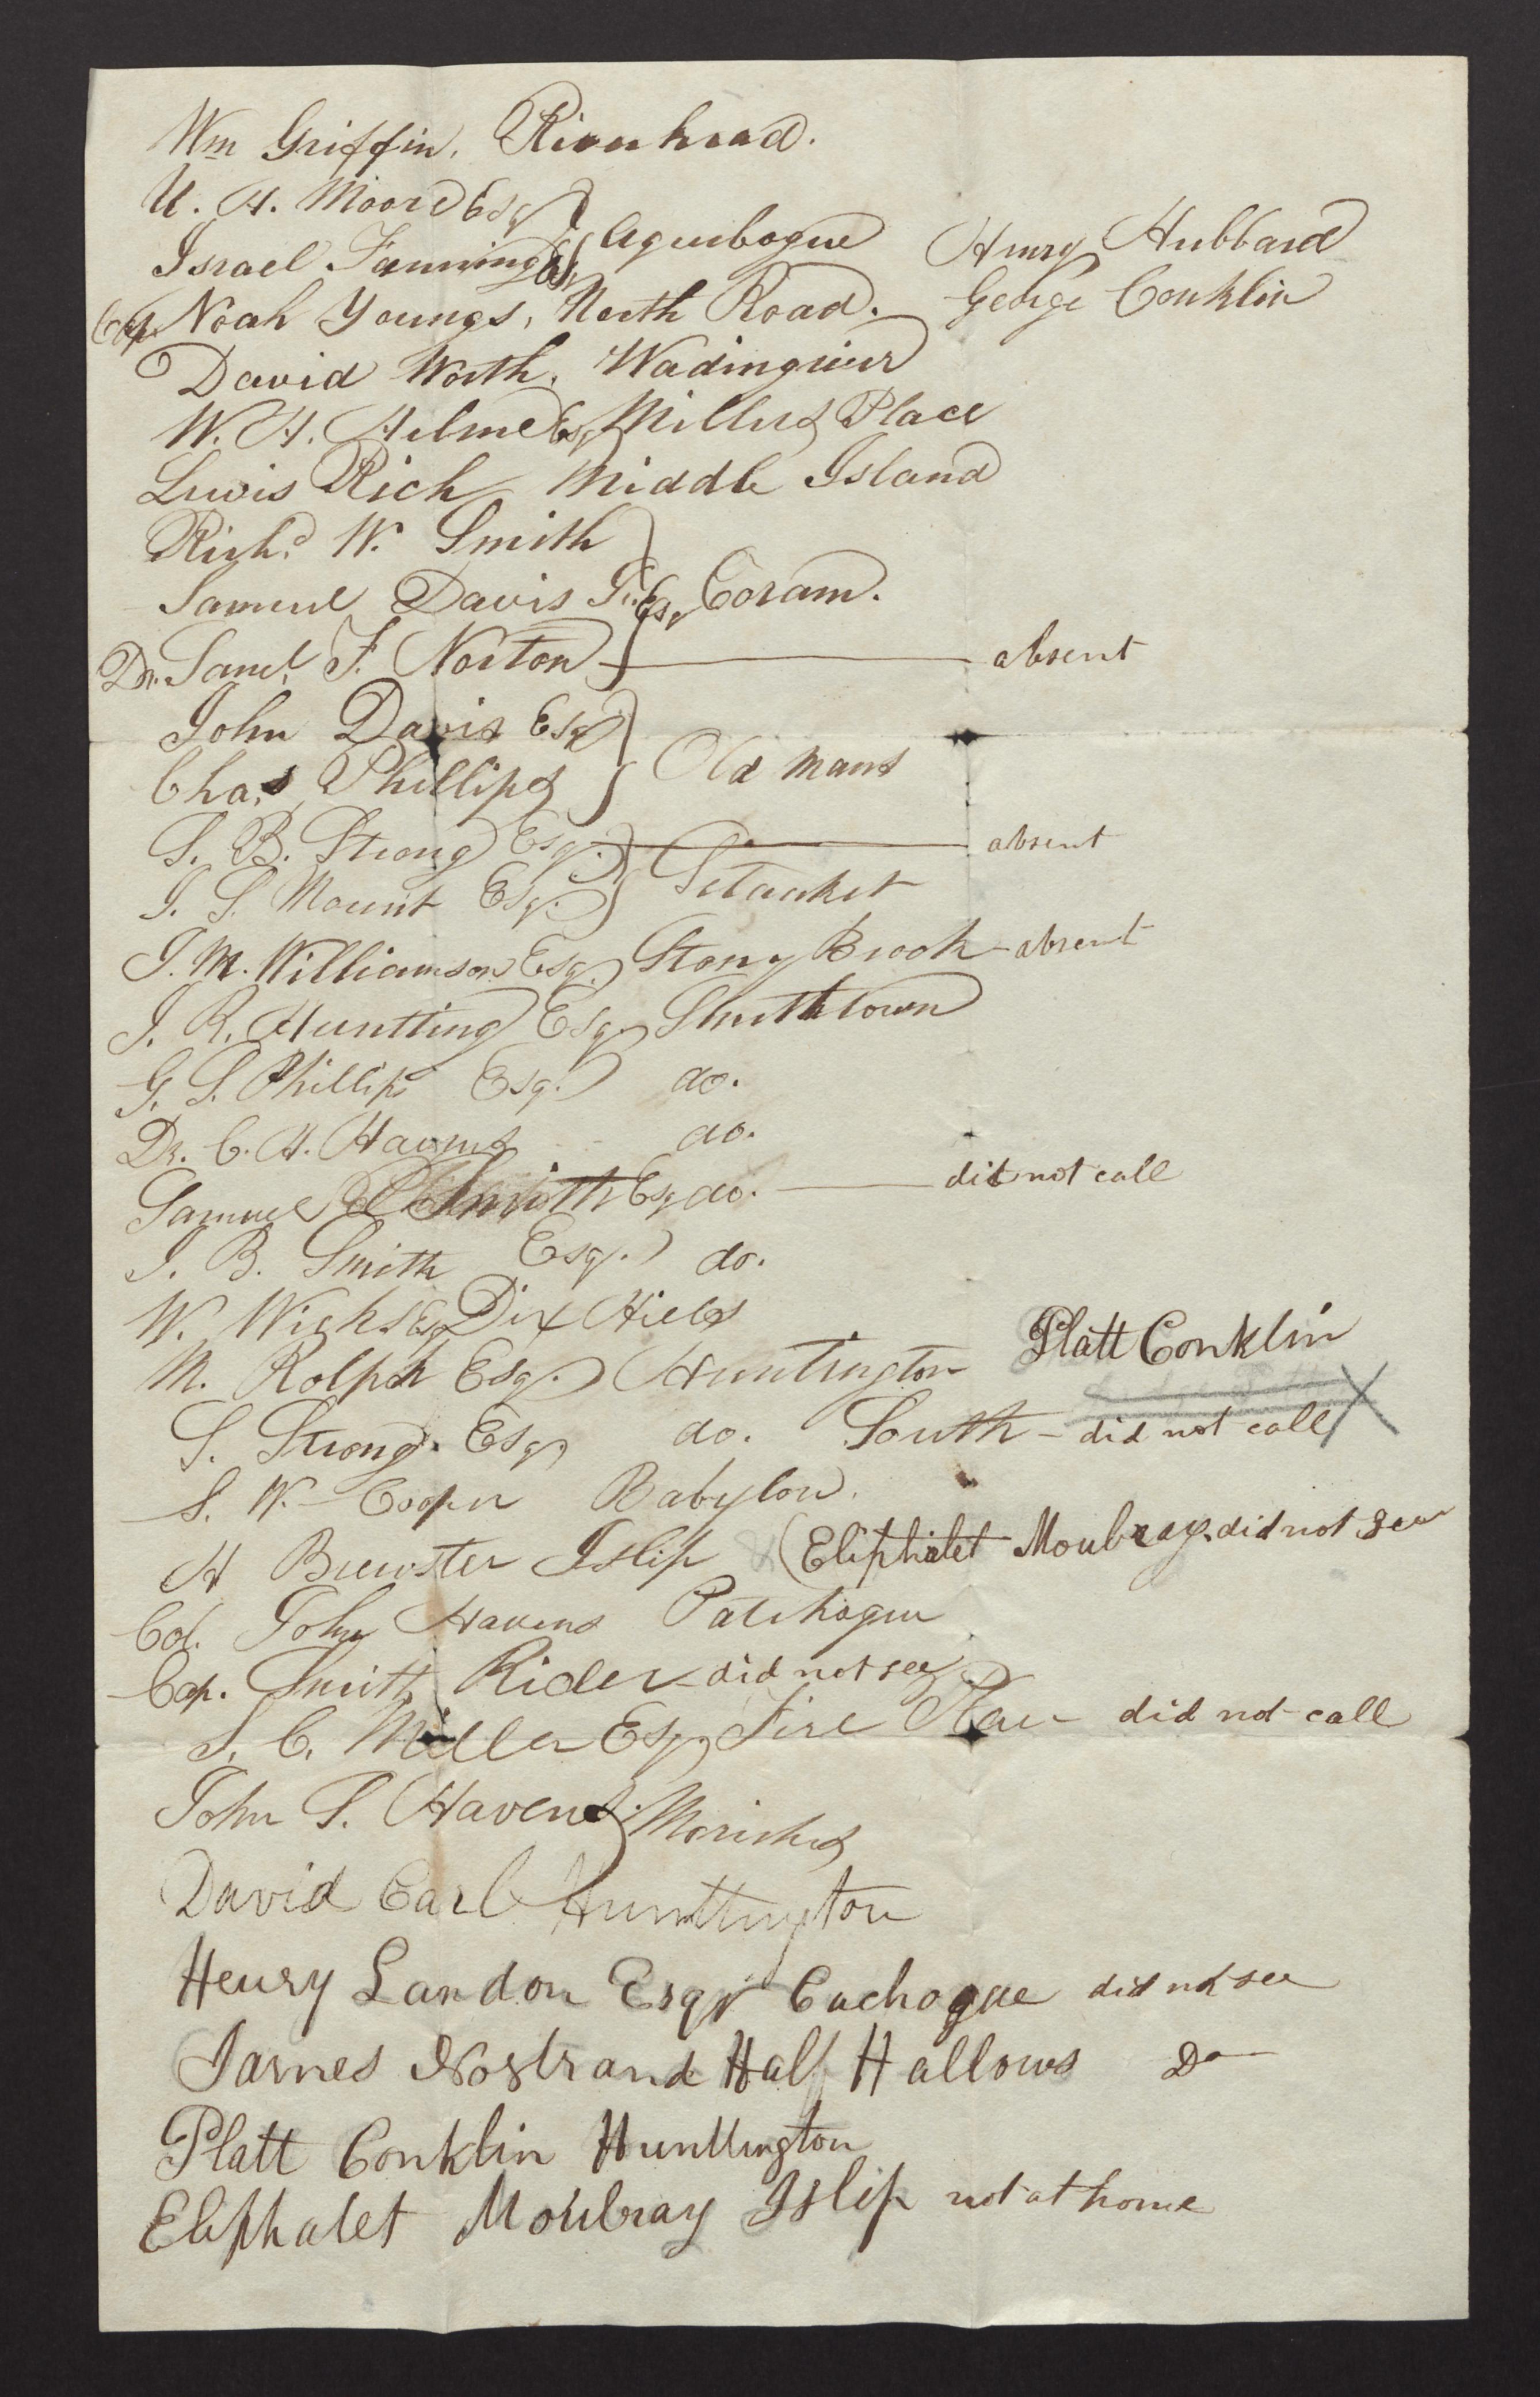 Wm Griffin, Riverhead.
U. H. Moore Esq
Aquebogue Henry Hubbard
Israel Fanning Esq
George Conklin
Cap. Noah Youngs, North Road.
David Worth, Wadingriver
W. H. Helme Esq Millers Place
Lewis Rich Middle Island
Richd. W. Smith
Samuel Davis Esq Coram.
Dr. Saml. F. Norton absent
John Davis Esq
Chas Phillips Old Mans
S. B. Strong Esq. absent
J. S. Mount Esq. Setauket
J. M. Williamson Esq. Stony Brook absent
J. R. Huntting Esq. Smithtown
G. S. Phillips Esq. do.
Dr. C. H. Havens do.
Samuel Smith Esq do. did not call
J. B. Smith Esq. do.
W. Wicks Esq Dix Hills
M. Rolph Esq. Huntington Platt Conklin
S. Strong Esq do. South - did not call X
S. W. Cooper Babylon.
H Brewster Islip & (Eliphalet Moubray. did not see
Col. John Havens Patchogue
Cap. Smith Rider did not see
S. C. Miller Esq Fire Place did not call
John S. Havens. Moriches
David Carl Hunttington
Henry Landon Esqr Cuchogue did not see
James Nostrand Half Hallows Do
Platt Conklin Hunttington
Eliphalet Moubray Islip not at home